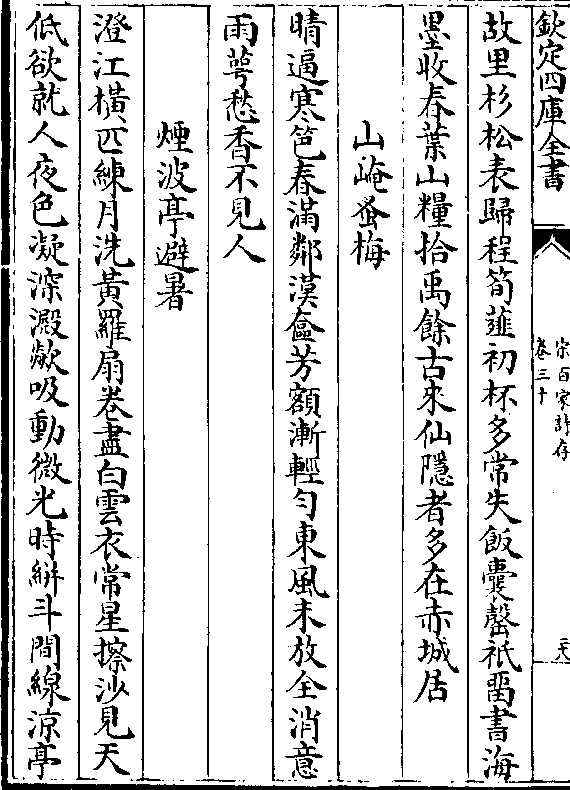 欽定四庫全書
宋百家詩存
卷三十
六
故里杉松表歸程筍蓮初杯多常失飯囊罄祇畱書海
墨收春葉山糧拾禹餘古來仙隱者多在赤城居
山崦蚤梅
晴逼寒笆春滿鄰漢奩芳額漸輕勻東風未放全消意
雨萼愁香不見人
煙波亭避暑
澄江橫匹練月洗黃羅扇卷盡白雲衣常星擦沙見天
低欲就人夜色凝深澱歘吸動微光時絣斗間線涼亭